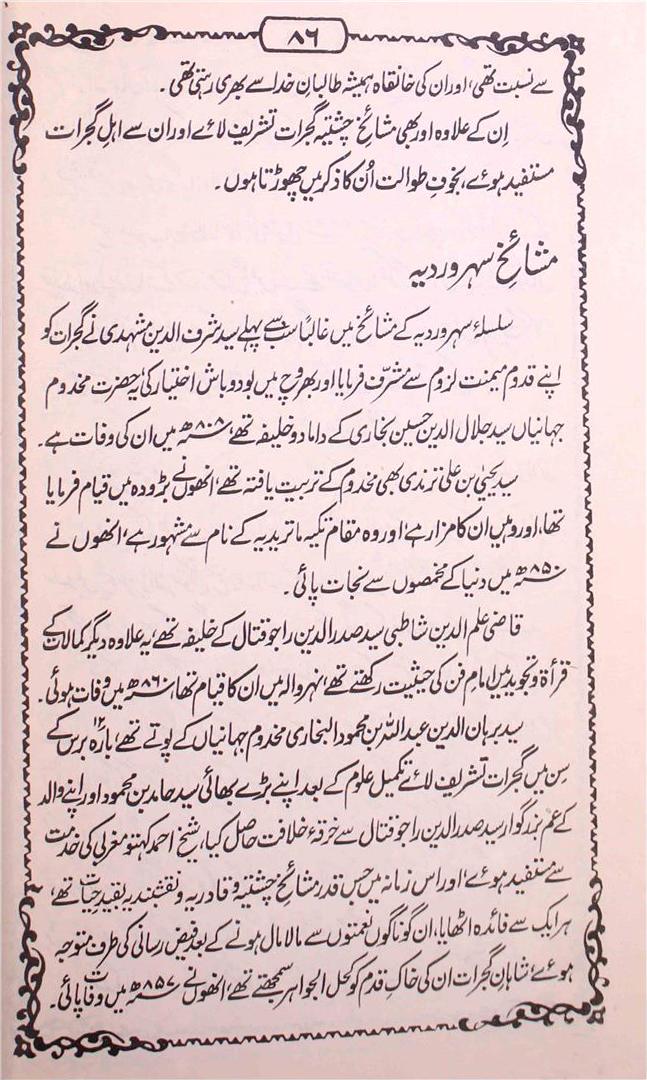 ۸۶
سے نسبت تھی، اور ان کی خانقاہ ہمیشہ طالبانِ خدا سے بھری رہتی تھی۔
اِن کے علاوہ اور بھی مشائخِ چشتیہ گجرات تشریف لائے اور ان سے اہلِ گجرات
مستفید ہوئے، بخوفِ طوالت اُن کا ذکر میں چھوڑتا ہوں۔
مشائخِ سہروردیہ
سلسلۂ سہروردیہ کے مشائخ میں غالباً سب سے پہلے سید شرف الدین مشہدی نے گجرات کو
اپنے قدوم میمنت لزوم سے مشرّف فرمایا اور بھروچ میں بود و باش اختیار کی، یہ حضرت مخدوم
جہانیاں سید جلال الدین حسین بخاری کے داماد و خلیفہ تھے، ۸۰۸ھ میں ان کی وفات ہے۔
سید یحییٰ بن علی ترمذی بھی مخدوم کے تربیت یافتہ تھے، انھوں نے بڑودہ میں قیام فرمایا
تھا، اور وہیں ان کا مزار ہے، اور وہ مقام تکیہ ماتریدیہ کے نام سے مشہور ہے، انھوں نے
۸۵۰ھ میں دنیا کے مخمصوں سے نجات پائی۔
قاضی علم الدین شاطبی سید صدر الدین راجو قتال کے خلیفہ تھے، یہ علاوہ دیگر کمالات کے
قرأۃ و تجوید میں امامِ فن کی حیثیت رکھتے تھے، نہروالہ میں ان کا قیام تھا، ۸۶۰ھ میں وفات ہوئی۔
سید برہان الدین عبد اللہ بن محمود البخاری مخدوم جہانیاں کے پوتے تھے، بارہ برس کے
سِن میں گجرات تشریف لائے تکمیل علوم کے بعد اپنے بڑے بھائی سید حامد بن محمود اور اپنے والد
کے عم بزرگوار سید صدر الدین راجو قتال سے خرقۂ خلافت حاصل کیا، شیخ احمد کھتو مغربی کی خدمت
سے مستفید ہوئے، اور اس زمانہ میں جس قدر مشائخ چشتیہ و قادریہ و نقشبندیہ بقید حیات تھے،
ہر ایک سے فائدہ اٹھایا، ان گوناگوں نعمتوں سے مالا مال ہونے کے بعد فیض رسانی کی طرف متوجہ
ہوئے، شاہانِ گجرات ان کی خاکِ قدم کو کحل الجواہر سمجھتے تھے، انھوں نے ۸۵۷ھ میں وفات پائی۔